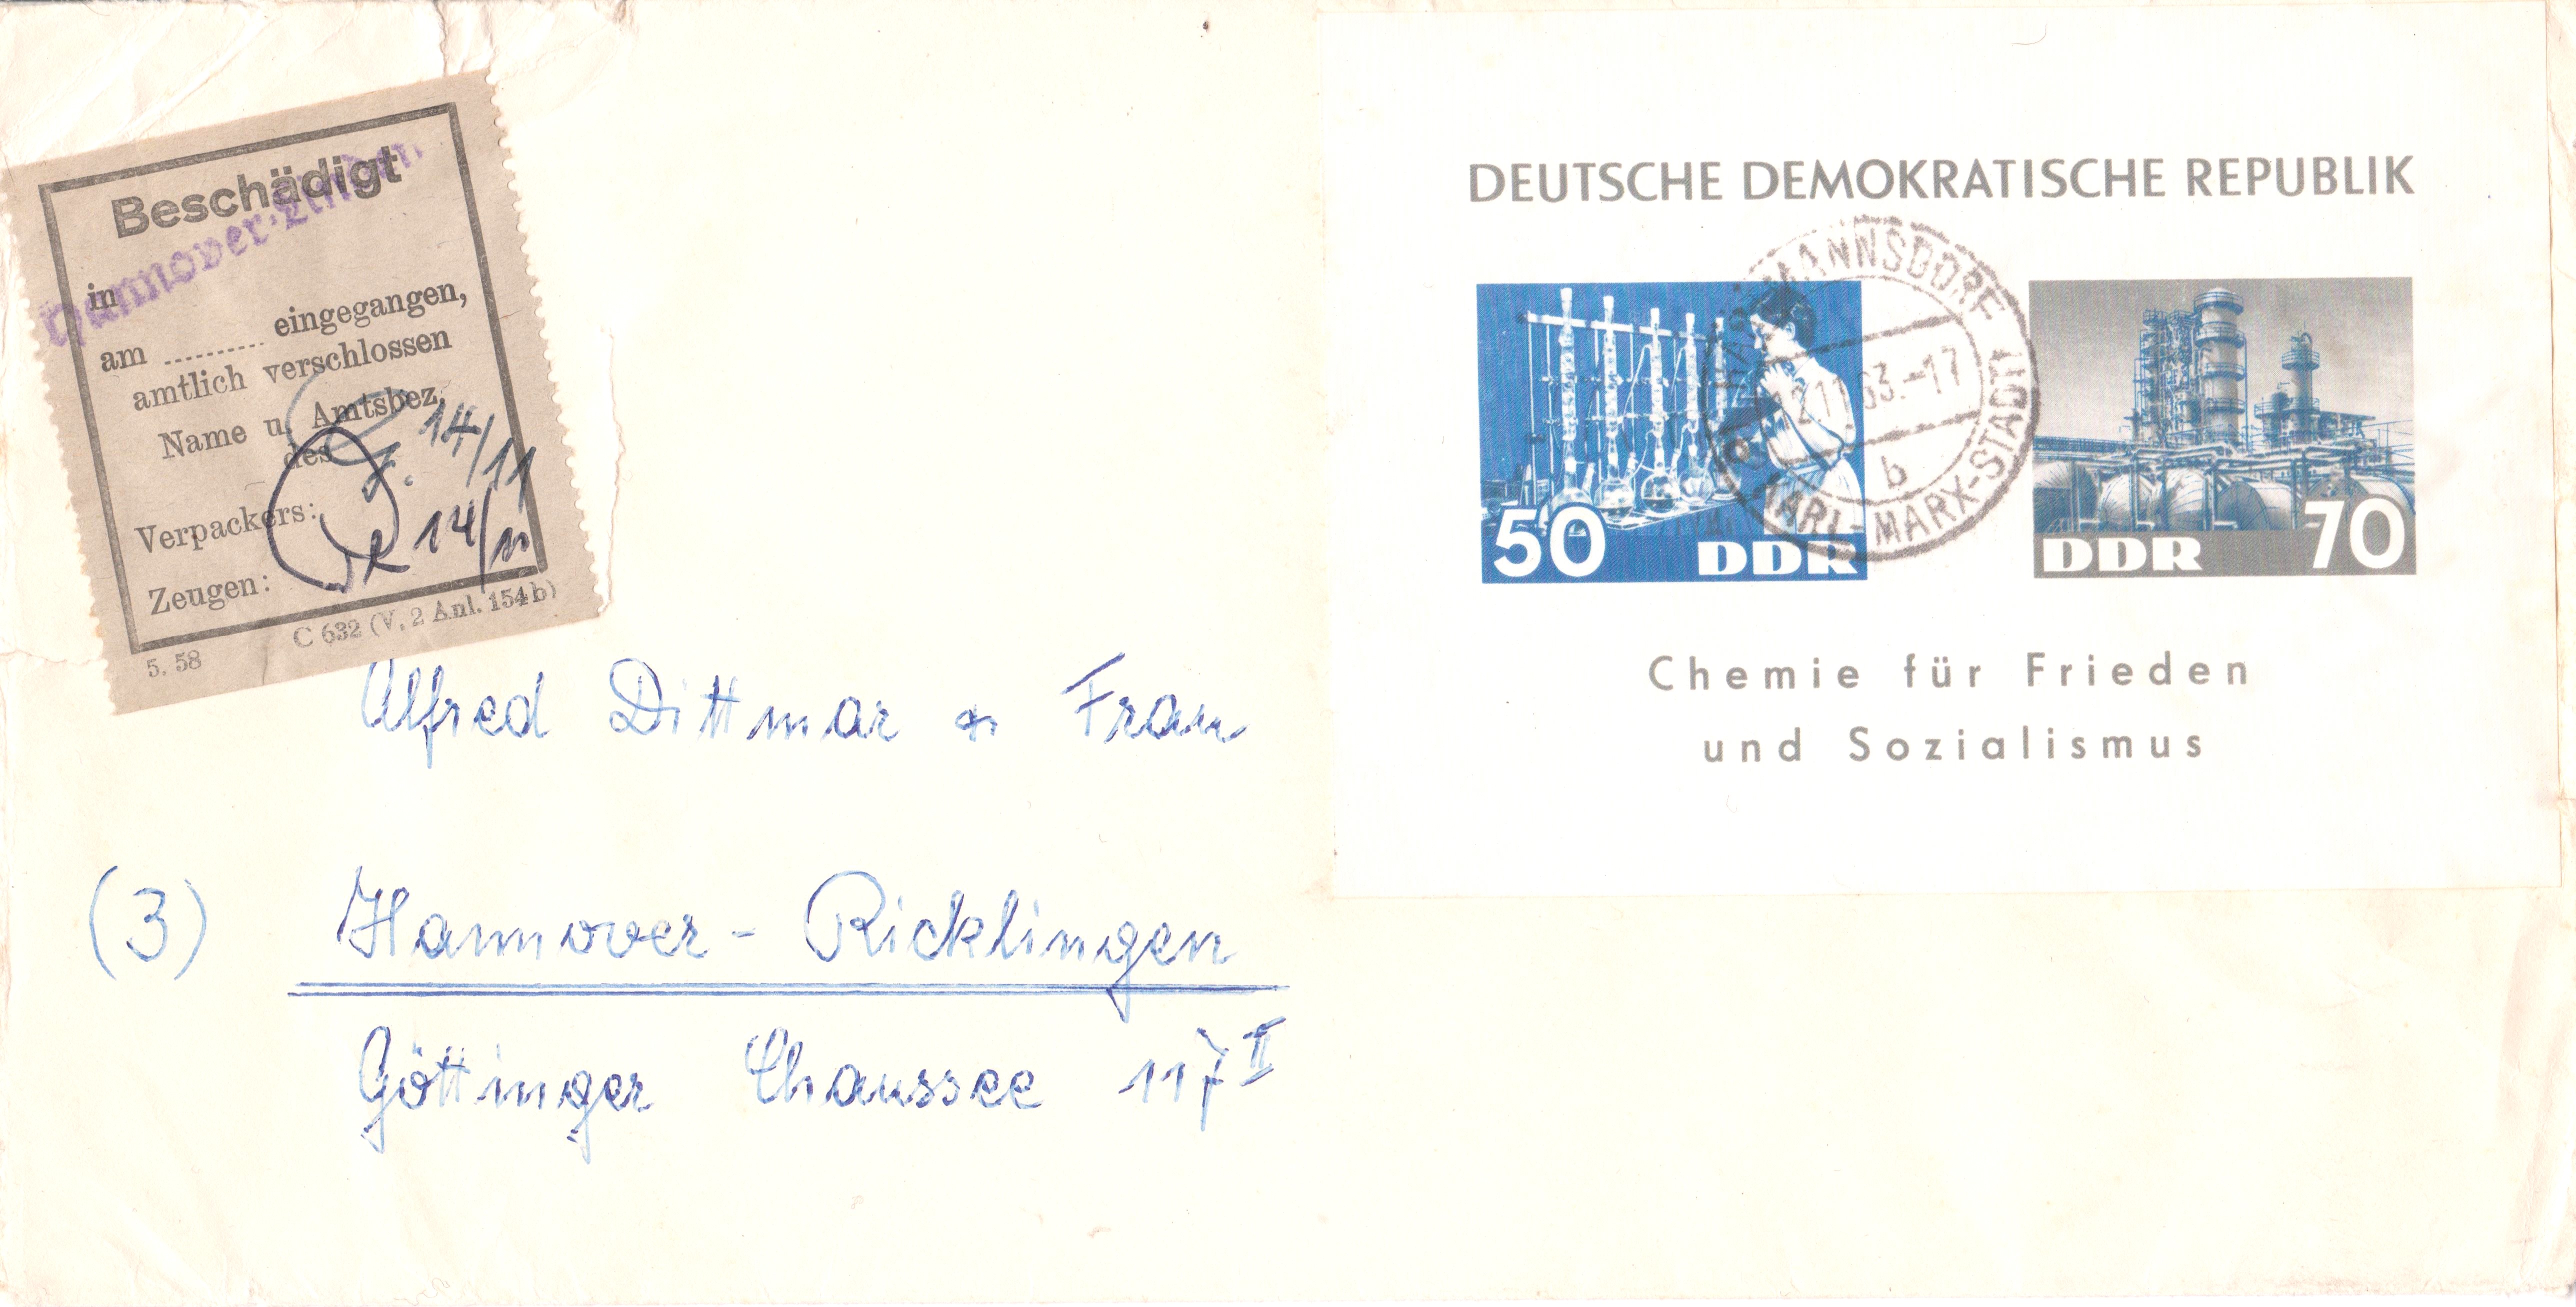 Beschädigt
Hannover-Linden
in
am .......... eingegangen,
amtlich verschlossen
Name u. Amtsbez.
des
14/11
Verpackers:
14/11
Zeugen:
5. 58
C 632 (V, 2 Anl. 154b)
DEUTSCHE DEMOKRATISCHE REPUBLIK
KARL-MARX-STADT
63.-17
b
50 DDR
DDR 70
Chemie für Frieden
und Sozialismus
Alfred Dittmar u Frau
(3) Hannover-Ricklingen
Göttinger Chaussee 117 II